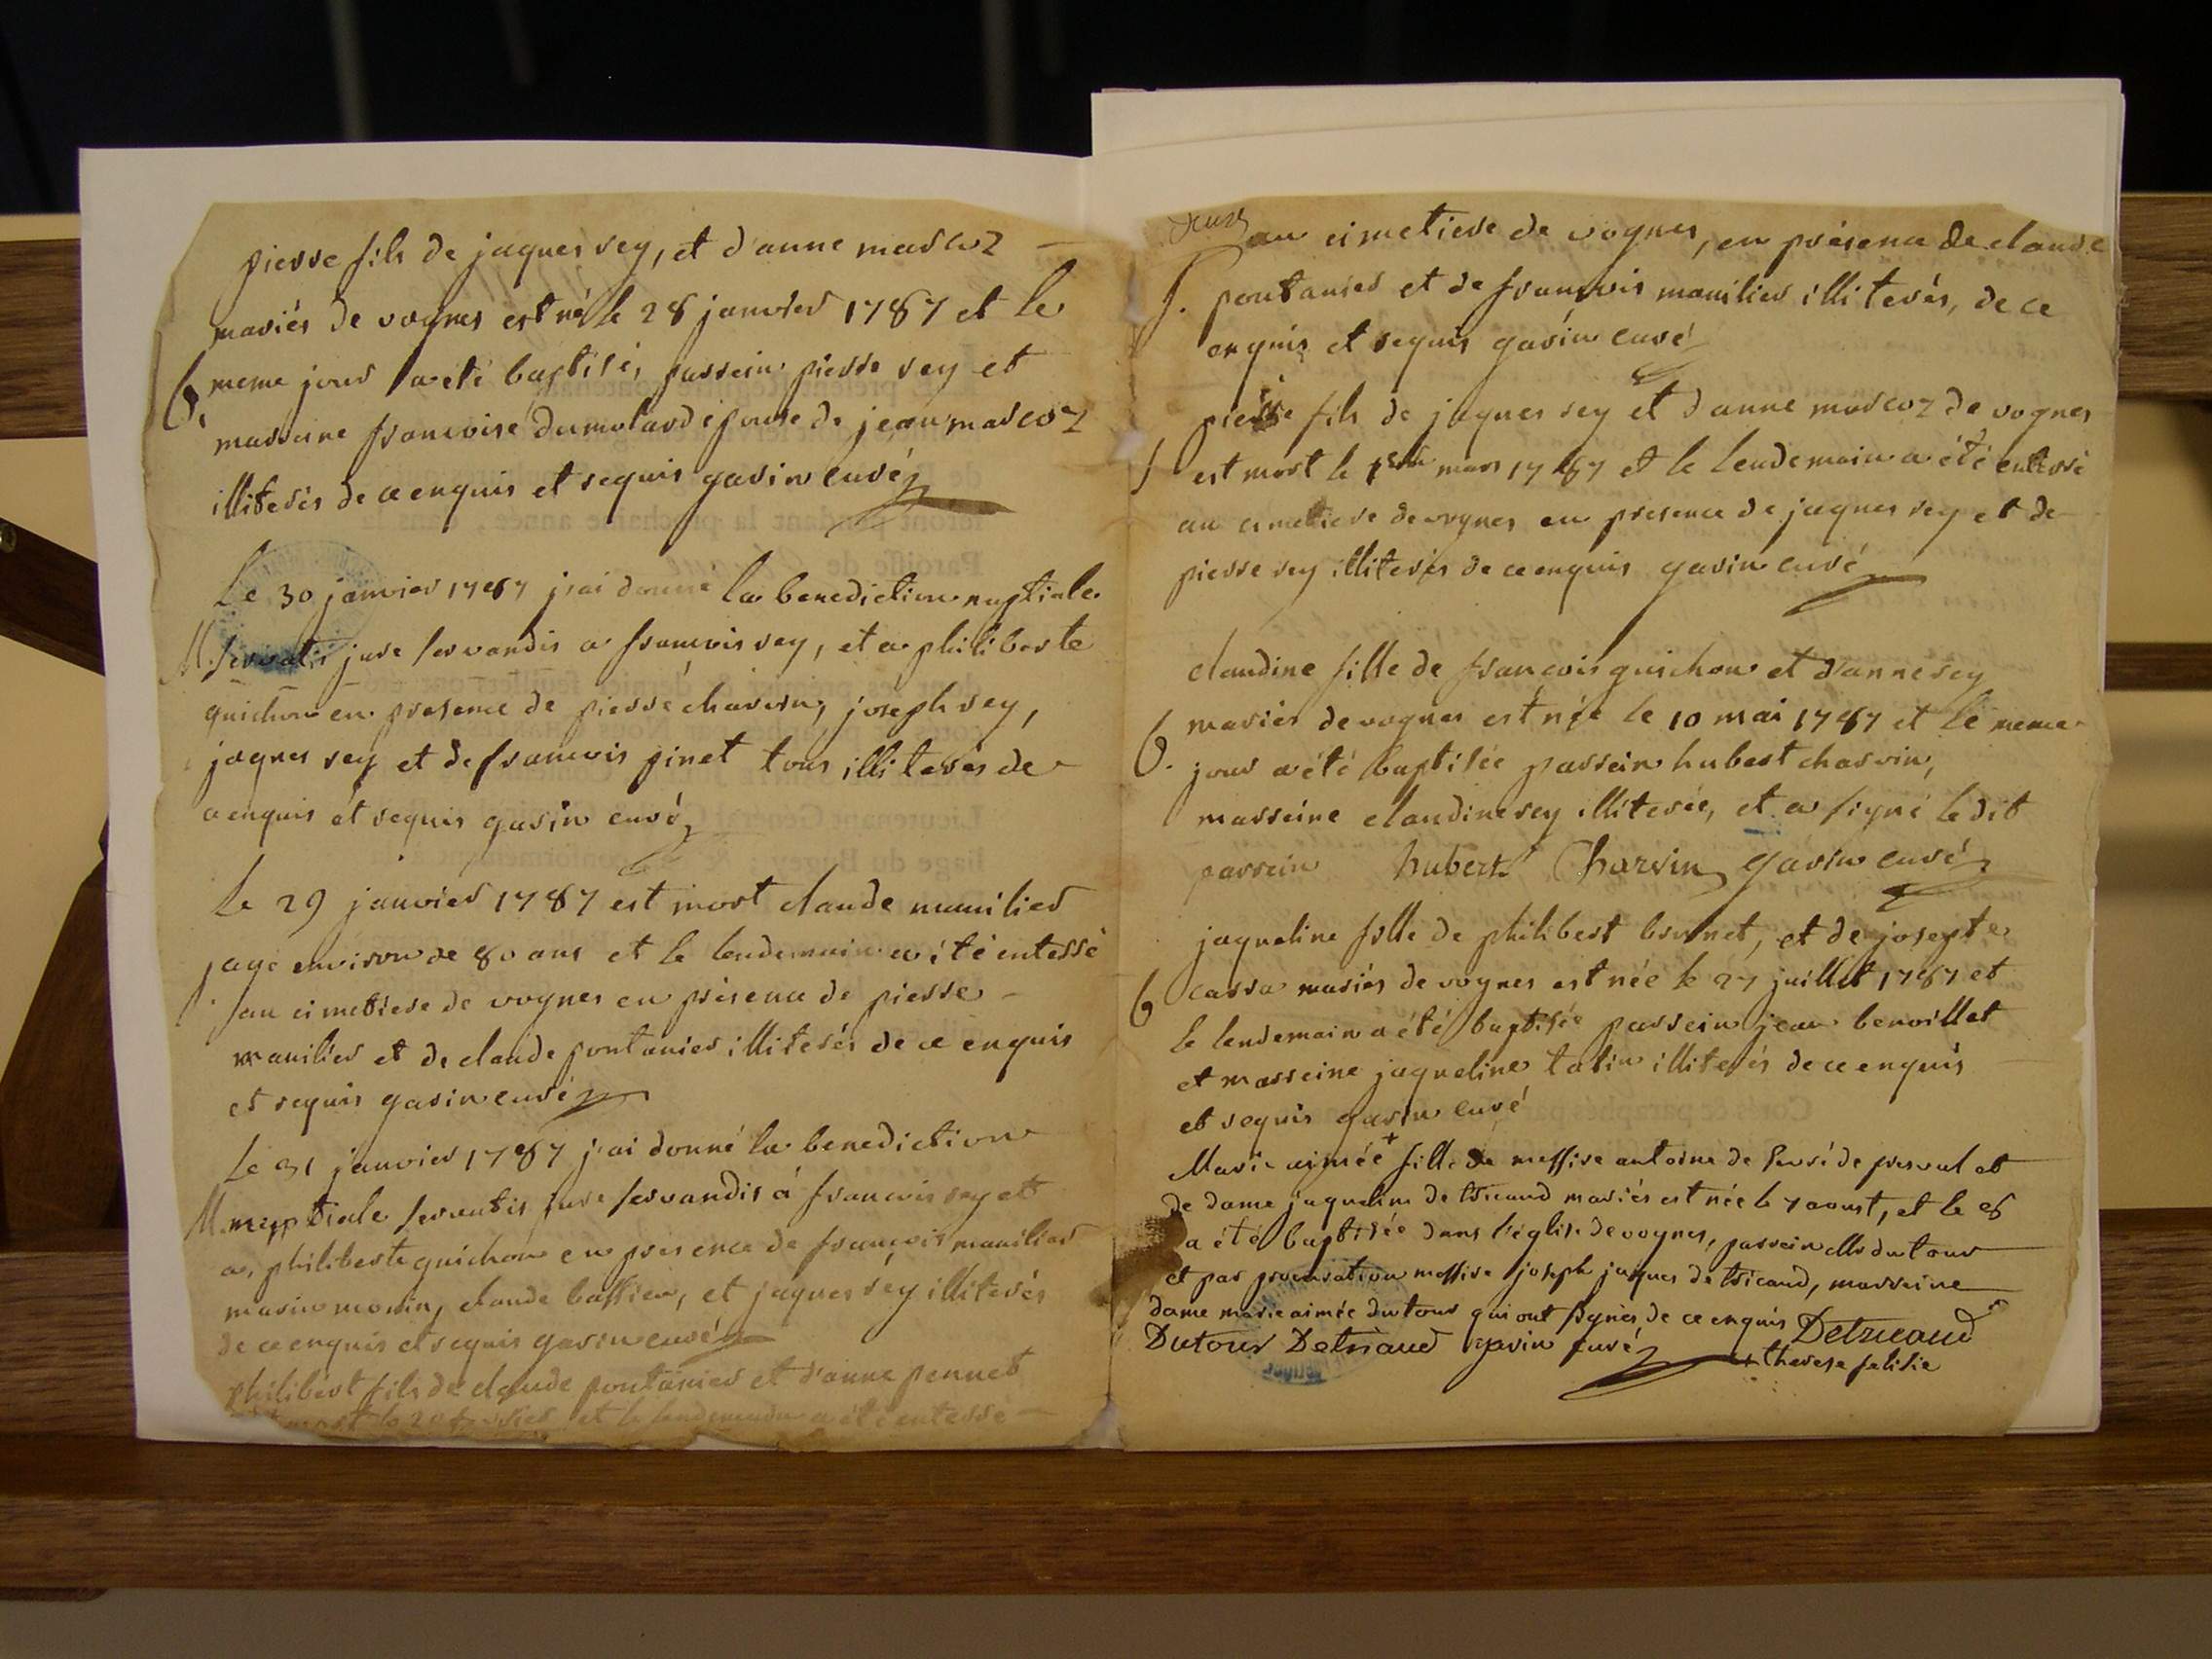 pierre fils de jaques rey, et d'anne marcoz
mariés de vognes est né le 28 janvier 1787 et le
B. meme jour a été baptisé, parrein pierre rey et
marreine francoise dumolard épouse de jean marcoz
illiterés de ce enquis et requis gavin curé
Le 30 janvier 1787 j'ai donné la benediction nuptiale
M. servatis jure servandis a francois rey, et a philiberte
guichon en presence de pierre charvin, joseph rey,
jaques rey et de francois pinet tous illiterés de
ce enquis et requis gavin curé
Le 29 janvier 1787 est mort claude manilier
agé environ de 80 ans et le lendemain a été enterré
au cimetiere de vognes en présence de pierre
manilier et de claude pontanier illiterés de ce enquis
et requis gavin curé
Le 31 janvier 1787 j'ai donné la benediction
M. nuptiale servatis jure servandis á francois rey et
a philiberte guichon en presence de françois manilier
marin monin, claude bassieu, et jaques rey illiterés
de ce enquis et requis gavin curé
philibert fils de claude pontanier et d'anne pennet
est mort le 20 fevrier et le lendemain a été enterré
deux
au cimetiere de vognes, en présence de claude
S. pontanier et de françois manilier illiterés, de ce
enquis et requis gavin curé
pierre fils de jaques rey et d'anne marcoz de vognes
S est mort le 1er mars 1787 et le lendemain a été enterré
au cimetiere de vognes en presence de jaques rey et de
pierre rey illiterés de ce enquis gavin curé
claudine fille de francois guichon et d'anne rey
mariés de vognes est née le 10 mai 1787 et le meme
B. jour a été baptisée parrein hubert charvin,
marreine claudine rey illiterée, et a signé le dit
parrein hubert Charvin gavin curé
jaqueline fille de philibert brunet, et de josepte
B carra mariés de vognes est née le 27 juillet 1787 et
le lendemain a été baptisée parrein jean benoillet
et marreine jaqueline tatin illiterés de ce enquis
et requis gavin curé
Marie aimée + fille de messire antoine de de et
de dame jaqueline de tricaud mariés est née le 7 aoust, et le 8
a été baptisée dans l'église de vognes, parrein dutour
et par procuration messire joseph jaques de tricaud, marreine
dame marie aimée dutour qui ont signés de ce enquis Detricaud
Dutour Detricaud gavin curé
+ therese felisie